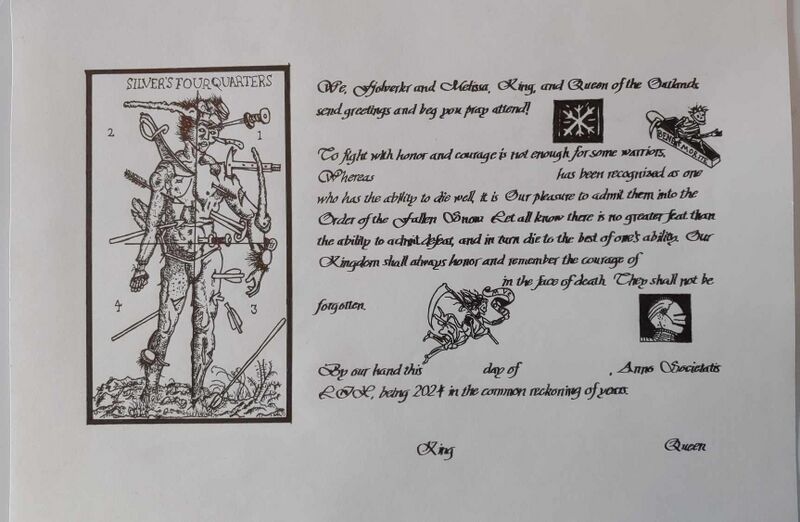 SILVER'S FOUR QUARTERS
2
1
4
3
We, Fjolverkr and Melissa, King, and Queen of the Outlands
send greetings and beg you pray attend!
BENE MORITE
To fight with honor and courage is not enough for some warriors,
Whereas has been recognized as one
who has the ability to die well, it is Our pleasure to admit them into the
Order of the Fallen Snow. Let all know there is no greater feat than
the ability to admit defeat, and in turn die to the best of one's ability. Our
Kingdom shall always honor and remember the courage of
in the face of death. They shall not be
forgotten.
By our hand this day of , Anno Societatis
LIX, being 2024 in the common reckoning of years.
King Queen